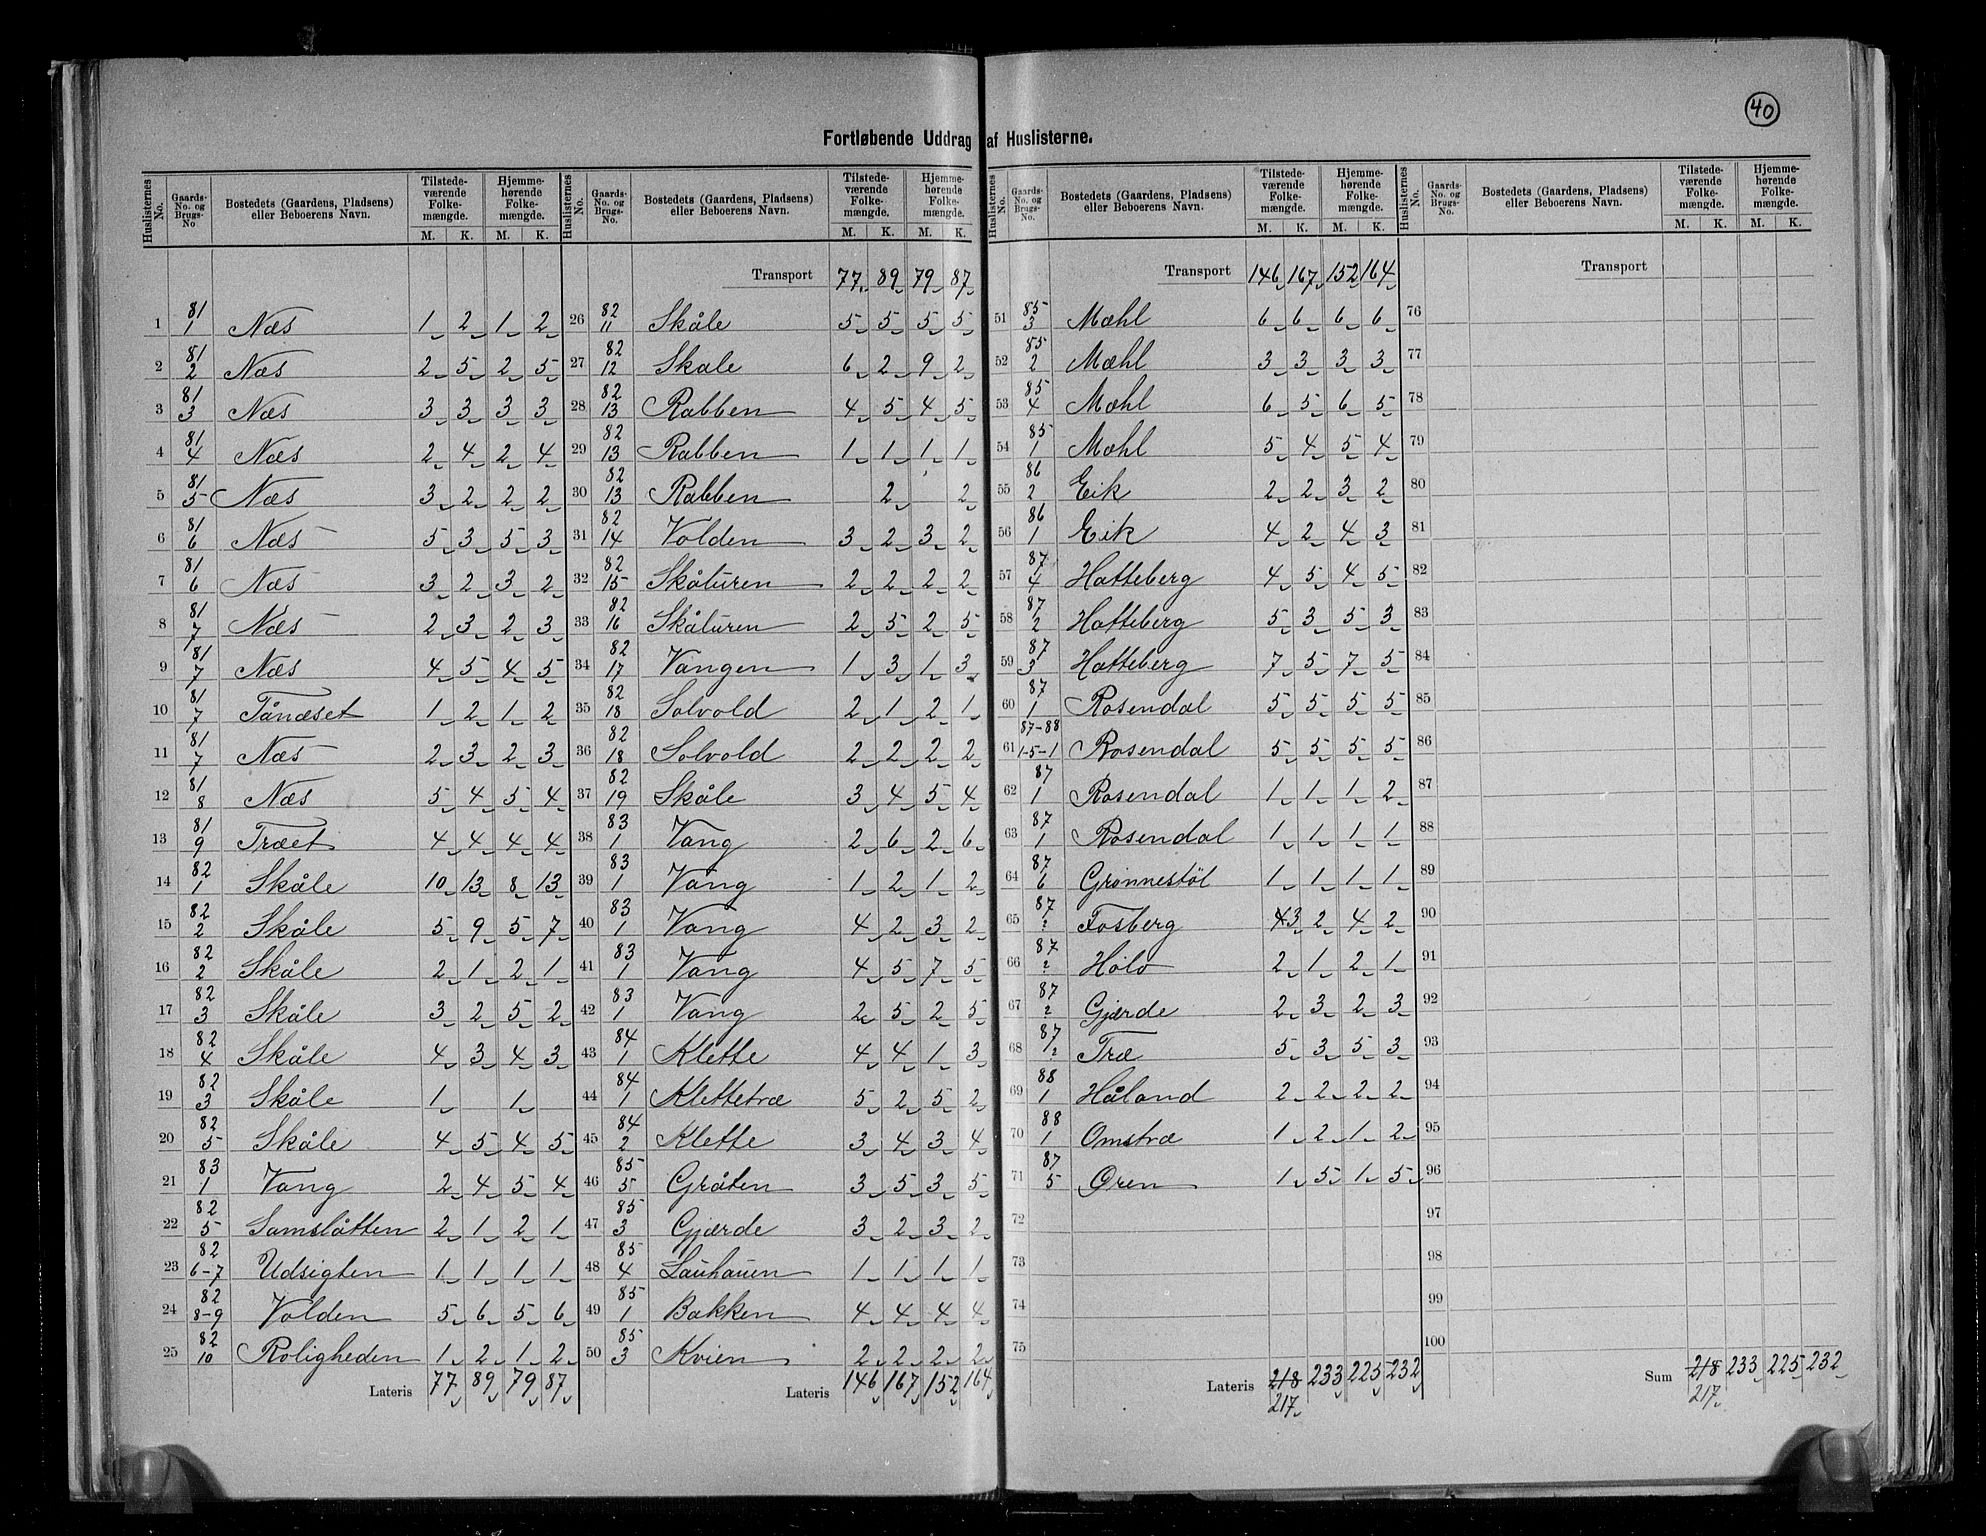 40
Fortløbende Uddrag af Huslisterne.
Huslisternes No. | Gaards-No. og Brugs-No | Bostedets (Gaardens, Pladsens) eller Beboerens Navn. | Tilstedeværende Folkemængde. M. K. | Hjemmehørende Folkemængde. M. K.
1 81/1 Næs 1 2 1 2
2 81/2 Næs 2 5 2 5
3 81/3 Næs 3 3 3 3
4 81/4 Næs 2 4 2 4
5 81/5 Næs 3 2 2 2
6 81/6 Næs 5 3 5 3
7 81/6 Næs 3 2 3 2
8 81/7 Næs 2 3 2 3
9 81/7 Næs 4 5 4 5
10 81/7 Tånæset 1 2 1 2
11 81/7 Næs 2 3 2 3
12 81/8 Næs 5 4 5 4
13 81/9 Træet 4 4 4 4
14 82/1 Skåle 10 13 8 13
15 82/2 Skåle 5 9 5 7
16 82/2 Skåle 2 1 2 1
17 82/3 Skåle 3 2 5 2
18 82/4 Skåle 4 3 4 3
19 82/3 Skåle 1 1
20 82/5 Skåle 4 5 4 5
21 83/1 Vang 2 4 5 4
22 82/5 Samslåtten 2 1 2 1
23 82/6-7 Udsigten 1 1 1 1
24 82/8-9 Volden 5 6 5 6
25 82/10 Roligheden 1 2 1 2
Lateris 77 89 79 87
Huslisternes No. | Gaards-No. og Brugs-No. | Bostedets (Gaardens, Pladsens) eller Beboerens Navn. | Tilstedeværende Folkemængde. M. K. | Hjemmehørende Folkemængde. M. K.
Transport 77 89 79 87
26 82/11 Skåle 5 5 5 5
27 82/12 Skale 6 2 9 2
28 82/13 Rabben 4 5 4 5
29 82/13 Rabben 1 1 1 1
30 82/13 Rabben 2 2
31 82/14 Volden 3 2 3 2
32 82/15 Skåturen 2 2 2 2
33 82/16 Skåturen 2 5 2 5
34 82/17 Vangen 1 3 1 3
35 82/18 Solvold 2 1 2 1
36 82/18 Solvold 2 2 2 2
37 82/19 Skåle 3 4 5 4
38 83/1 Vang 2 6 2 6
39 83/1 Vang 1 2 1 2
40 83/1 Vang 4 2 3 2
41 83/1 Vang 4 5 7 5
42 83/1 Vang 2 5 2 5
43 84/1 Klette 4 4 1 3
44 84/1 Klettetræ 5 2 5 2
45 84/2 Klette 3 4 3 4
46 85/5 Gråten 3 5 3 5
47 85/3 Gjærde 3 2 3 2
48 85/4 Lauhauen 1 1 1 1
49 85/1 Bakken 4 4 4 4
50 85/3 Kvien 2 2 2 2
Lateris 146 167 152 164
Huslisternes No. | Gaards-No. og Brugs-No. | Bostedets (Gaardens, Pladsens) eller Beboerens Navn. | Tilstedeværende Folkemængde. M. K. | Hjemmehørende Folkemængde. M. K.
Transport 146 167 152 164
51 85/3 Mæhl 6 6 6 6
52 85/2 Mæhl 3 3 3 3
53 85/4 Mæhl 6 5 6 5
54 85/1 Mæhl 5 4 5 4
55 86/2 Eik 2 2 3 2
56 86/1 Eik 4 2 4 3
57 87/4 Hatteberg 4 5 4 5
58 87/2 Hatteberg 5 3 5 3
59 87/3 Hatteberg 7 5 7 5
60 87/1 Rosendal 5 5 5 5
61 87-88/1-5-1 Rosendal 5 5 5 5
62 87/1 Rosendal 1 1 1 2
63 87/1 Rosendal 1 1 1 1
64 87/6 Grønnestøl 1 1 1 1
65 87/? Fosberg 4 3 2 4 2
66 87/? Hølo 2 1 2 1
67 87/? Gjærde 2 3 2 3
68 87/1? Træ 5 3 5 3
69 88/1 Håland 2 2 2 2
70 88/1 Omstræ 1 2 1 2
71 87/5 Øren 1 5 1 5
72
73
74
75
Lateris 218 233 225 232
217
Huslisternes No. | Gaards-No. og Brugs-No. | Bostedets (Gaardens, Pladsens) eller Beboerens Navn. | Tilstedeværende Folkemængde. M. K. | Hjemmehørende Folkemængde. M. K.
Transport
76
77
78
79
80
81
82
83
84
85
86
87
88
89
90
91
92
93
94
95
96
97
98
99
100
Sum 218 233 225 232
217